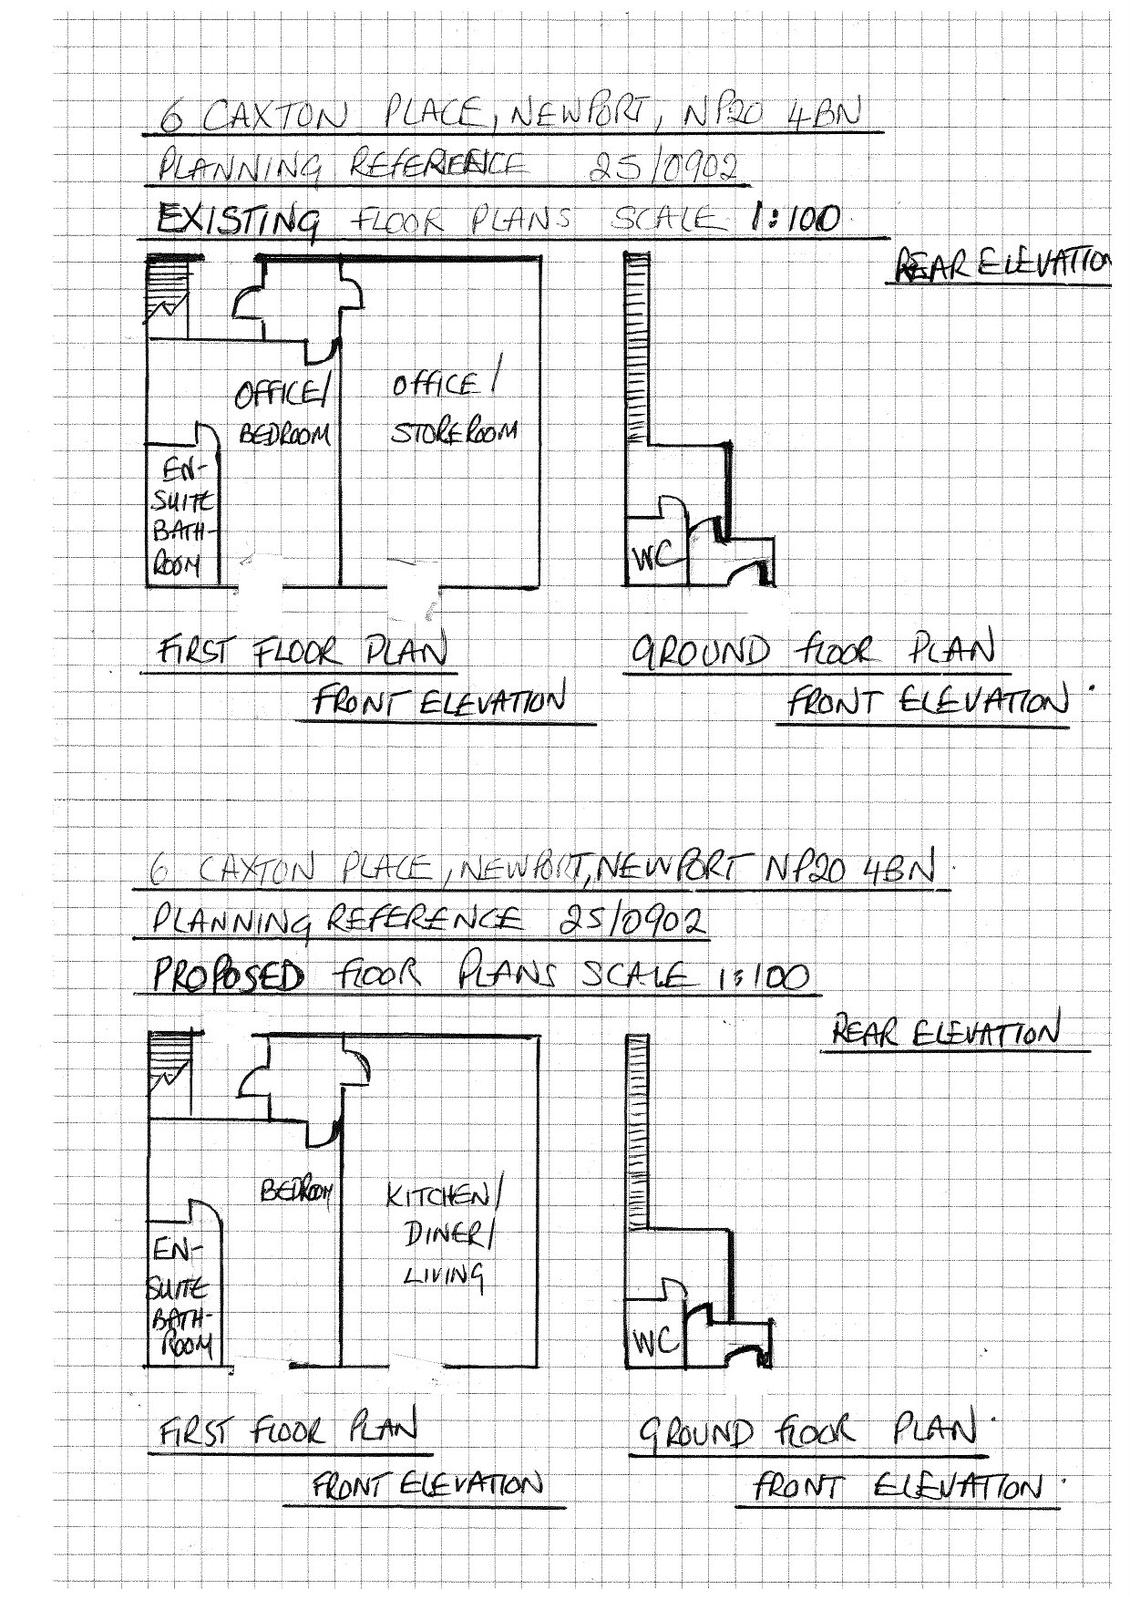 6 CAXTON PLACE, NEWPORT, NP20 4BN
PLANNING REFERENCE 25/0902
EXISTING FLOOR PLANS SCALE 1:100
REAR ELEVATION
OFFICE/
BEDROOM
OFFICE/
STOREROOM
EN-
SUITE
BATH-
ROOM
WC
FIRST FLOOR PLAN
FRONT ELEVATION
GROUND FLOOR PLAN
FRONT ELEVATION
6 CAXTON PLACE, NEWPORT, NEWPORT NP20 4BN
PLANNING REFERENCE 25/0902
PROPOSED FLOOR PLANS SCALE 1:100
REAR ELEVATION
BEDROOM
KITCHEN/
DINER/
LIVING
EN-
SUITE
BATH-
ROOM
WC
FIRST FLOOR PLAN
FRONT ELEVATION
GROUND FLOOR PLAN
FRONT ELEVATION